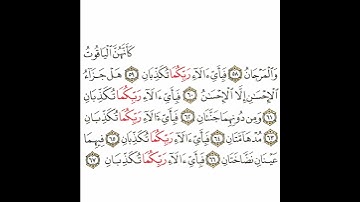 كَأَنَّهُنَّ الْيَاقُوتُ
وَالْمَرْجَانُ ﴿٥٨﴾ فَبِأَيِّ ءَالَآءِ رَبِّكُمَا تُكَذِّبَانِ ﴿٥٩﴾ هَلْ جَزَآءُ
الْإِحْسَٰنِ إِلَّا الْإِحْسَٰنُ ﴿٦٠﴾ فَبِأَيِّ ءَالَآءِ رَبِّكُمَا تُكَذِّبَانِ
﴿٦١﴾ وَمِن دُونِهِمَا جَنَّتَانِ ﴿٦٢﴾ فَبِأَيِّ ءَالَآءِ رَبِّكُمَا تُكَذِّبَانِ
﴿٦٣﴾ مُدْهَآمَّتَانِ ﴿٦٤﴾ فَبِأَيِّ ءَالَآءِ رَبِّكُمَا تُكَذِّبَانِ ﴿٦٥﴾ فِيهِمَا
عَيْنَانِ نَضَّاخَتَانِ ﴿٦٦﴾ فَبِأَيِّ ءَالَآءِ رَبِّكُمَا تُكَذِّبَانِ ﴿٦٧﴾